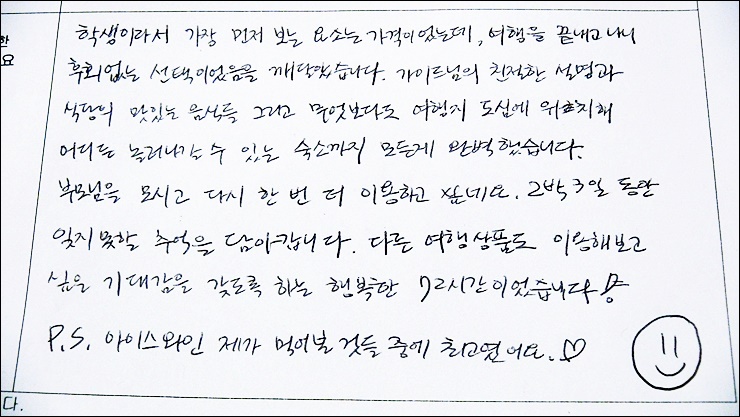 한
요
학생이라서 가장 먼저 보는 요소는 가격이었는데, 여행을 끝내고나니
후회없는 선택이었음을 깨달았습니다. 가이드님의 친절한 설명과
식당의 맛있는 음식들 그리고 무엇보다도 여행지 도심에 위치해
어디든 놀러나갈 수 있는 숙소까지 모든게 완벽했습니다.
부모님을 모시고 다시 한 번 더 이용하고 싶네요. 2박 3일 동안
잊지못할 추억을 담아갑니다. 다른 여행상품도 이용해보고
싶은 기대감을 갖도록 하는 행복한 72시간이었습니다
P.S. 아이스와인 제가 먹어본 것들 중에 최고였어요. ♡
다.